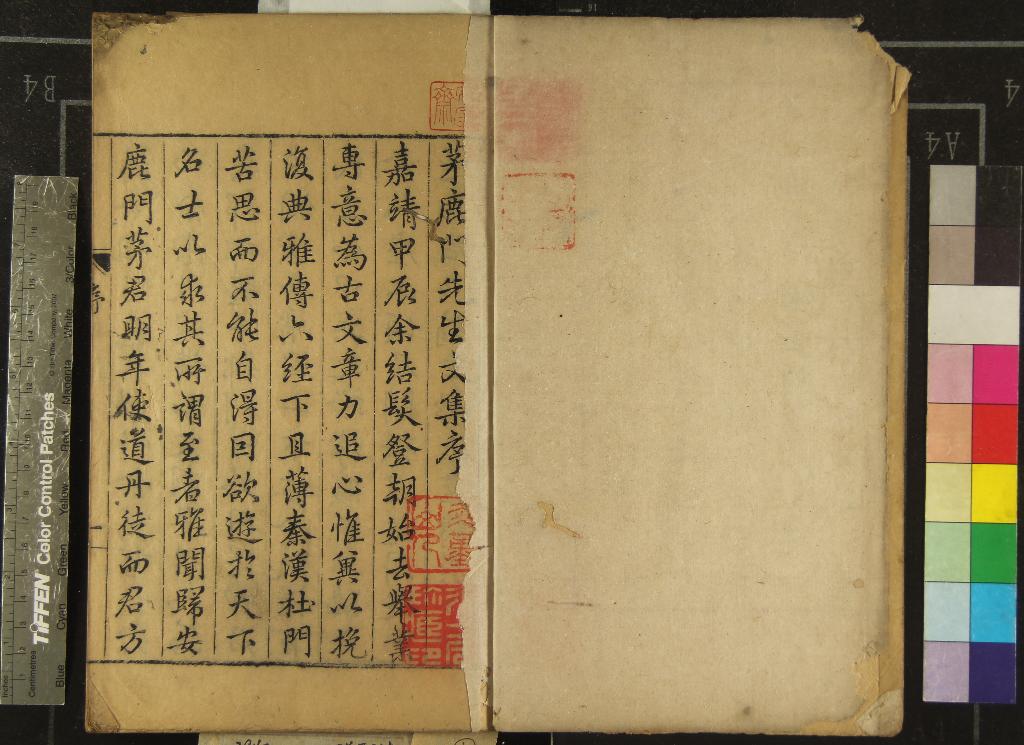 茅鹿門先生文集序
嘉靖甲辰余結髮登朝始去舉業
專意為古文章力追心惟興以挽
復典雅傳六經下且薄秦漢杜門
苦思而不能自得因欲遊於天下
名士以求其所謂至者雅聞歸安
鹿門茅君明年使道丹徒而君方
序
B4
A4
4
TIFFEN Color Control Patches
Blue
Cyan
Green
Yellow
Red
Magenta
White
3/Color
Black
Centimetres
Inches